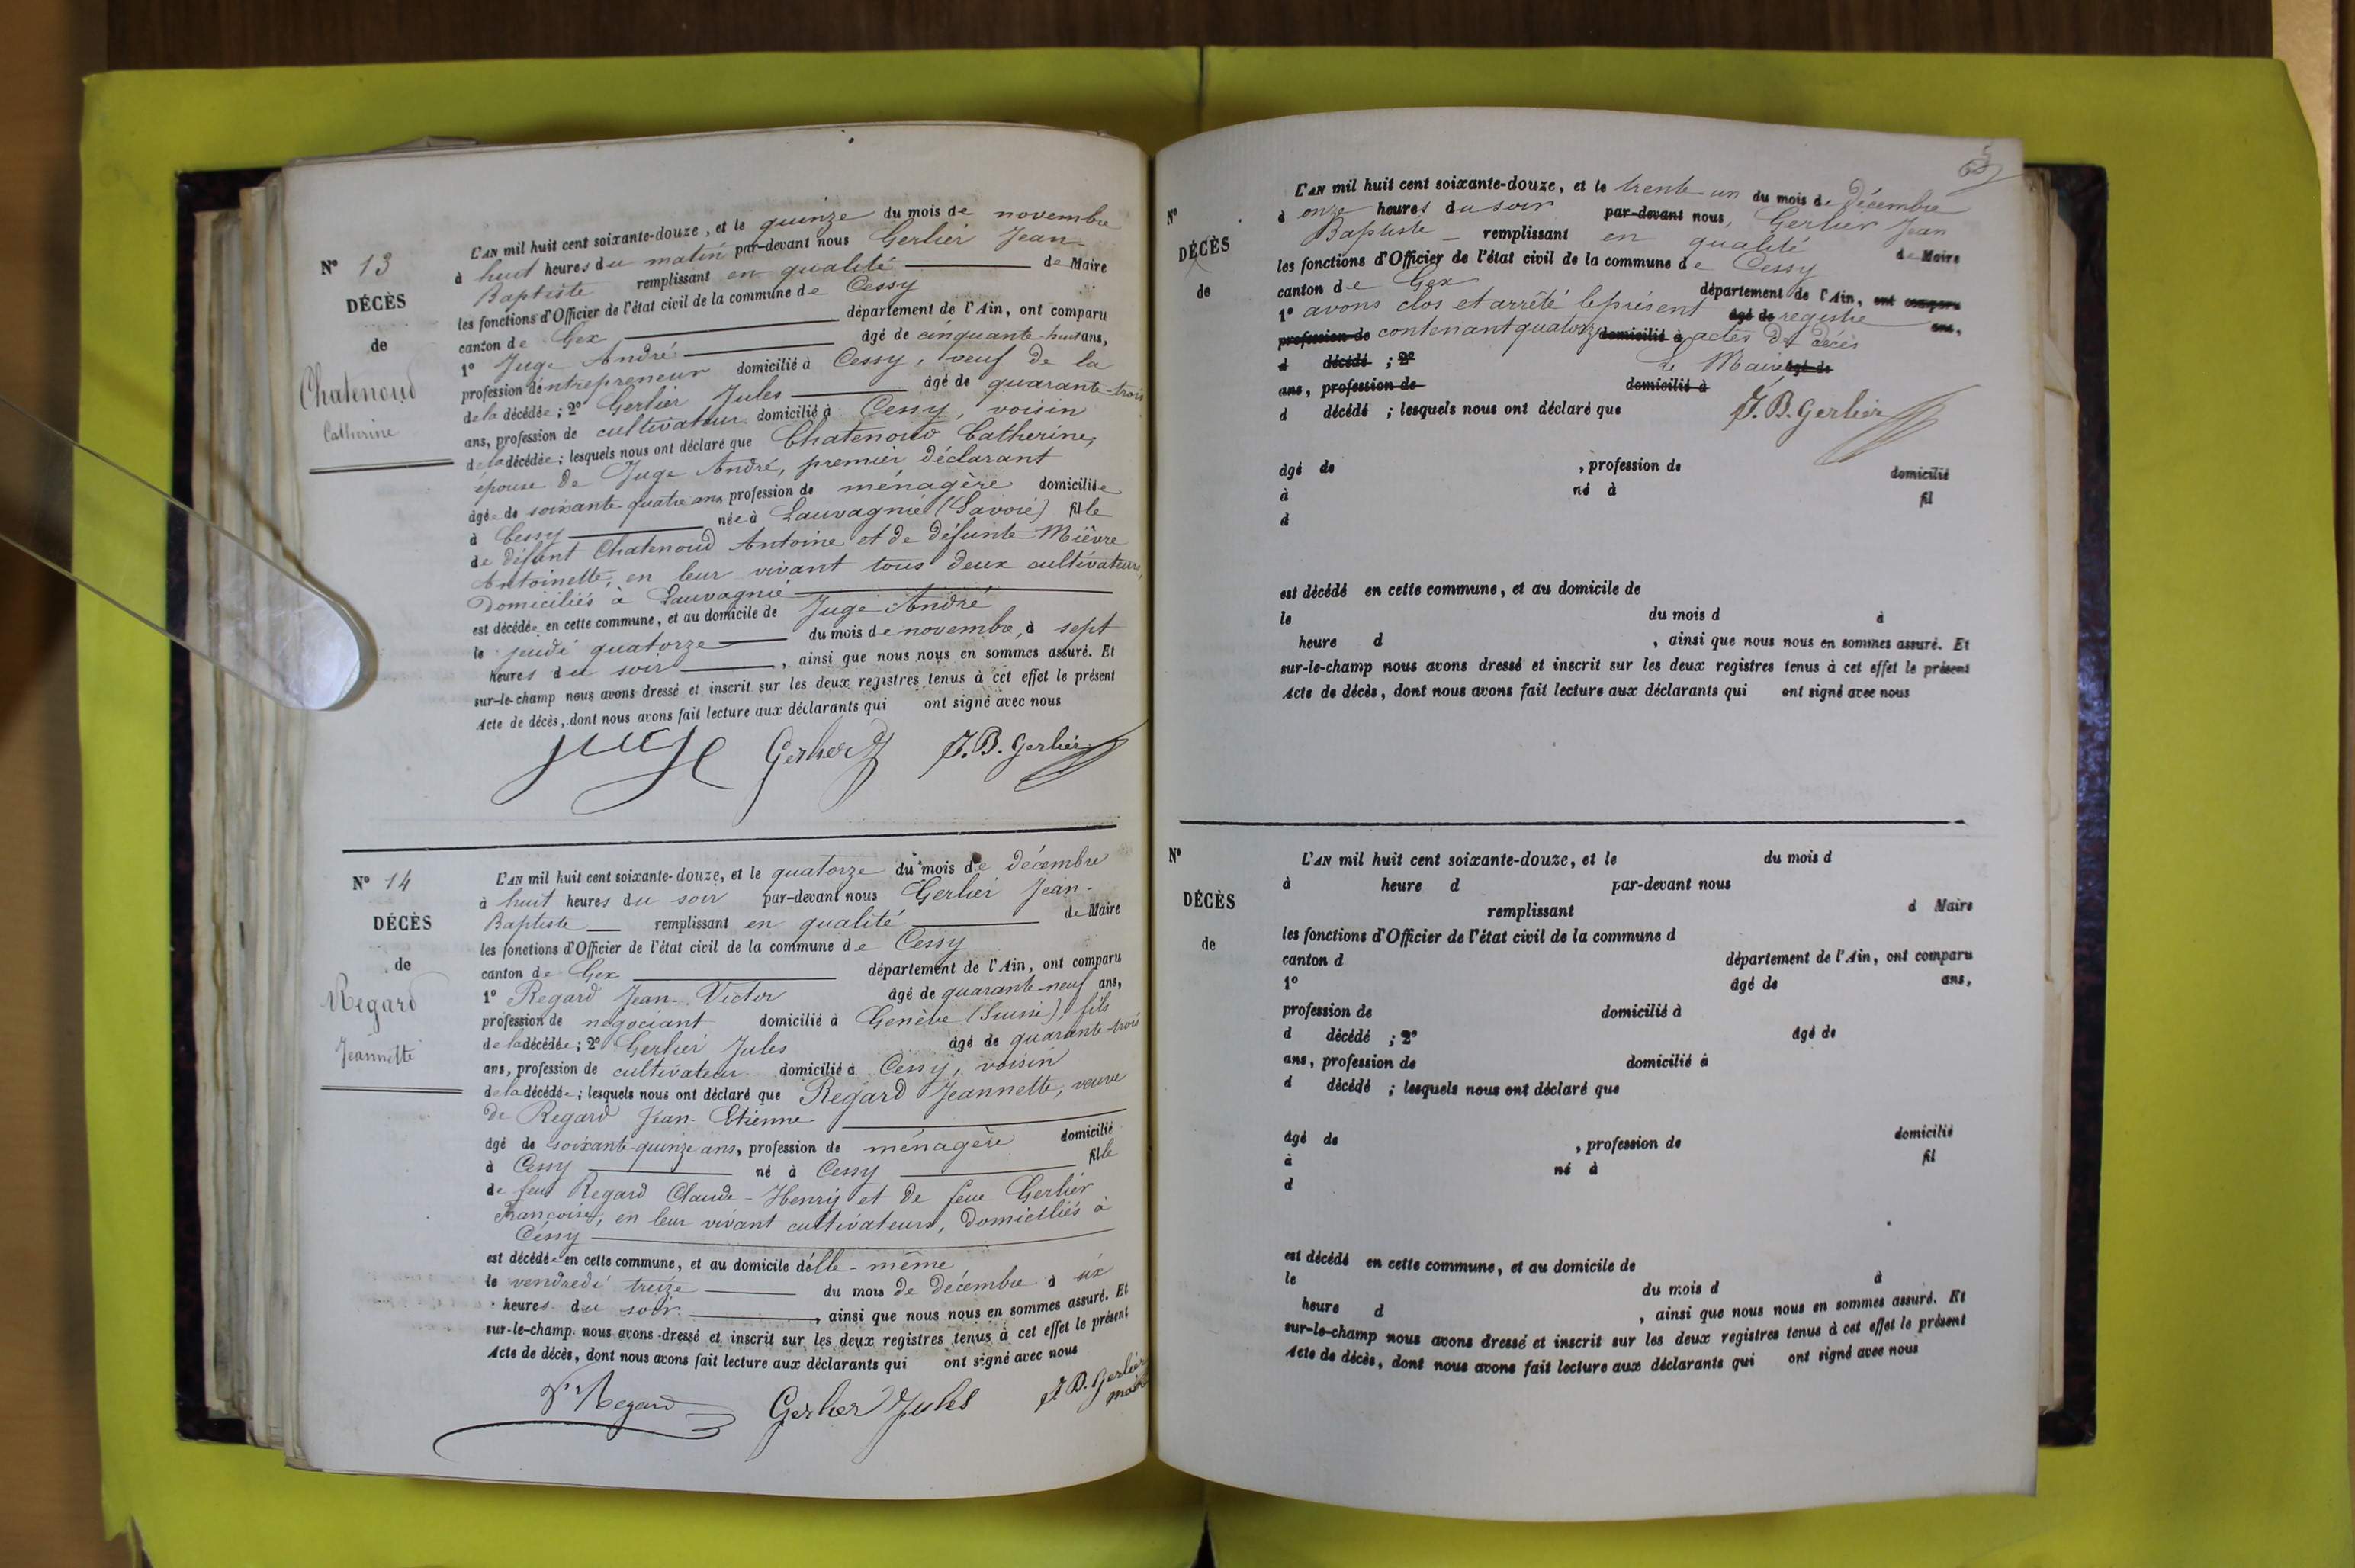 N° 13
DÉCÈS
de
Chatenoud
Catherine
L'AN mil huit cent soixante-douze, et le quinze du mois de novembre
à huit heures du matin par-devant nous Gerlier Jean-
Baptiste remplissant en qualité de Maire
les fonctions d'Officier de l'état civil de la commune de Cessy
canton de Gex département de l'Ain, ont comparu
1° Juge André âgé de cinquante-huit ans,
profession d'entrepreneur domicilié à Cessy, veuf de la
de la décédée ; 2° Gerlier Jules âgé de quarante-trois
ans, profession de cultivateur domicilié à Cessy, voisin
de la décédée ; lesquels nous ont déclaré que Chatenoud Catherine,
épouse de Juge André, premier déclarant
âgée de soixante-quatre ans, profession de ménagère domiciliée
à Cessy née à Lauvagnie (Savoie) fille
de défunt Chatenoud Antoine et de défunte Mièvre
Antoinette, en leur vivant tous deux cultivateurs,
Domiciliés à Lauvagnie
est décédée en cette commune, et au domicile de Juge André
le jeudi quatorze du mois de novembre, à sept
heures du soir, ainsi que nous nous en sommes assuré. Et
sur-le-champ nous avons dressé et inscrit sur les deux registres tenus à cet effet le présent
Acte de décès, dont nous avons fait lecture aux déclarants qui ont signé avec nous
juge Gerlier J. J.B. Gerlier
N° 14
DÉCÈS
de
Regard
Jeannette
L'AN mil huit cent soixante-douze, et le quatorze du mois de décembre
à huit heures du soir par-devant nous Gerlier Jean-
Baptiste remplissant en qualité de Maire
les fonctions d'Officier de l'état civil de la commune de Cessy
canton de Gex département de l'Ain, ont comparu
1° Regard Jean-Victor âgé de quarante-neuf ans,
profession de négociant domicilié à Genève (Suisse), fils
de la décédée ; 2° Gerlier Jules âgé de quarante-trois
ans, profession de cultivateur domicilié à Cessy, voisin
de la décédée ; lesquels nous ont déclaré que Regard Jeannette, veuve
de Regard Jean-Etienne
âgé de soixante-quinze ans, profession de ménagère domicilié
à Cessy né à Cessy fille
de feu Regard Claude-Henry et de feue Gerlier
Françoise, en leur vivant cultivateurs, domiciliés à
Cessy
est décédée en cette commune, et au domicile d'elle-même
le vendredi treize du mois de décembre à six
heures du soir, ainsi que nous nous en sommes assuré. Et
sur-le-champ nous avons dressé et inscrit sur les deux registres tenus à cet effet le présent
Acte de décès, dont nous avons fait lecture aux déclarants qui ont signé avec nous
Regard Gerlier Jules J.B. Gerlier
maire
N°
DÉCÈS
de
L'AN mil huit cent soixante-douze, et le trente-un du mois de Décembre
à onze heures du soir par-devant nous, Gerlier Jean
Baptiste remplissant en qualité de Maire
les fonctions d'Officier de l'état civil de la commune de Cessy
canton de Gex département de l'Ain, ont comparu
1° avons clos et arrêté le présent âgé de registre ans,
profession de contenant quatorze domicilié à actes de décès
d décédé ; 2° Le Maire âgé de
ans, profession de domicilié à
d décédé ; lesquels nous ont déclaré que J.B. Gerlier
âgé de , profession de domicilié
à né à fil
d
est décédé en cette commune, et au domicile de
le du mois d à
heure d , ainsi que nous nous en sommes assuré. Et
sur-le-champ nous avons dressé et inscrit sur les deux registres tenus à cet effet le présent
Acte de décès, dont nous avons fait lecture aux déclarants qui ont signé avec nous
N°
DÉCÈS
de
L'AN mil huit cent soixante-douze, et le du mois d
à heure d par-devant nous
remplissant d Maire
les fonctions d'Officier de l'état civil de la commune d
canton d département de l'Ain, ont comparu
1° âgé de ans,
profession de domicilié à
d décédé ; 2° âgé de
ans, profession de domicilié à
d décédé ; lesquels nous ont déclaré que
âgé de , profession de domicilié
à né à fil
d
est décédé en cette commune, et au domicile de
le du mois d à
heure d , ainsi que nous nous en sommes assuré. Et
sur-le-champ nous avons dressé et inscrit sur les deux registres tenus à cet effet le présent
Acte de décès, dont nous avons fait lecture aux déclarants qui ont signé avec nous